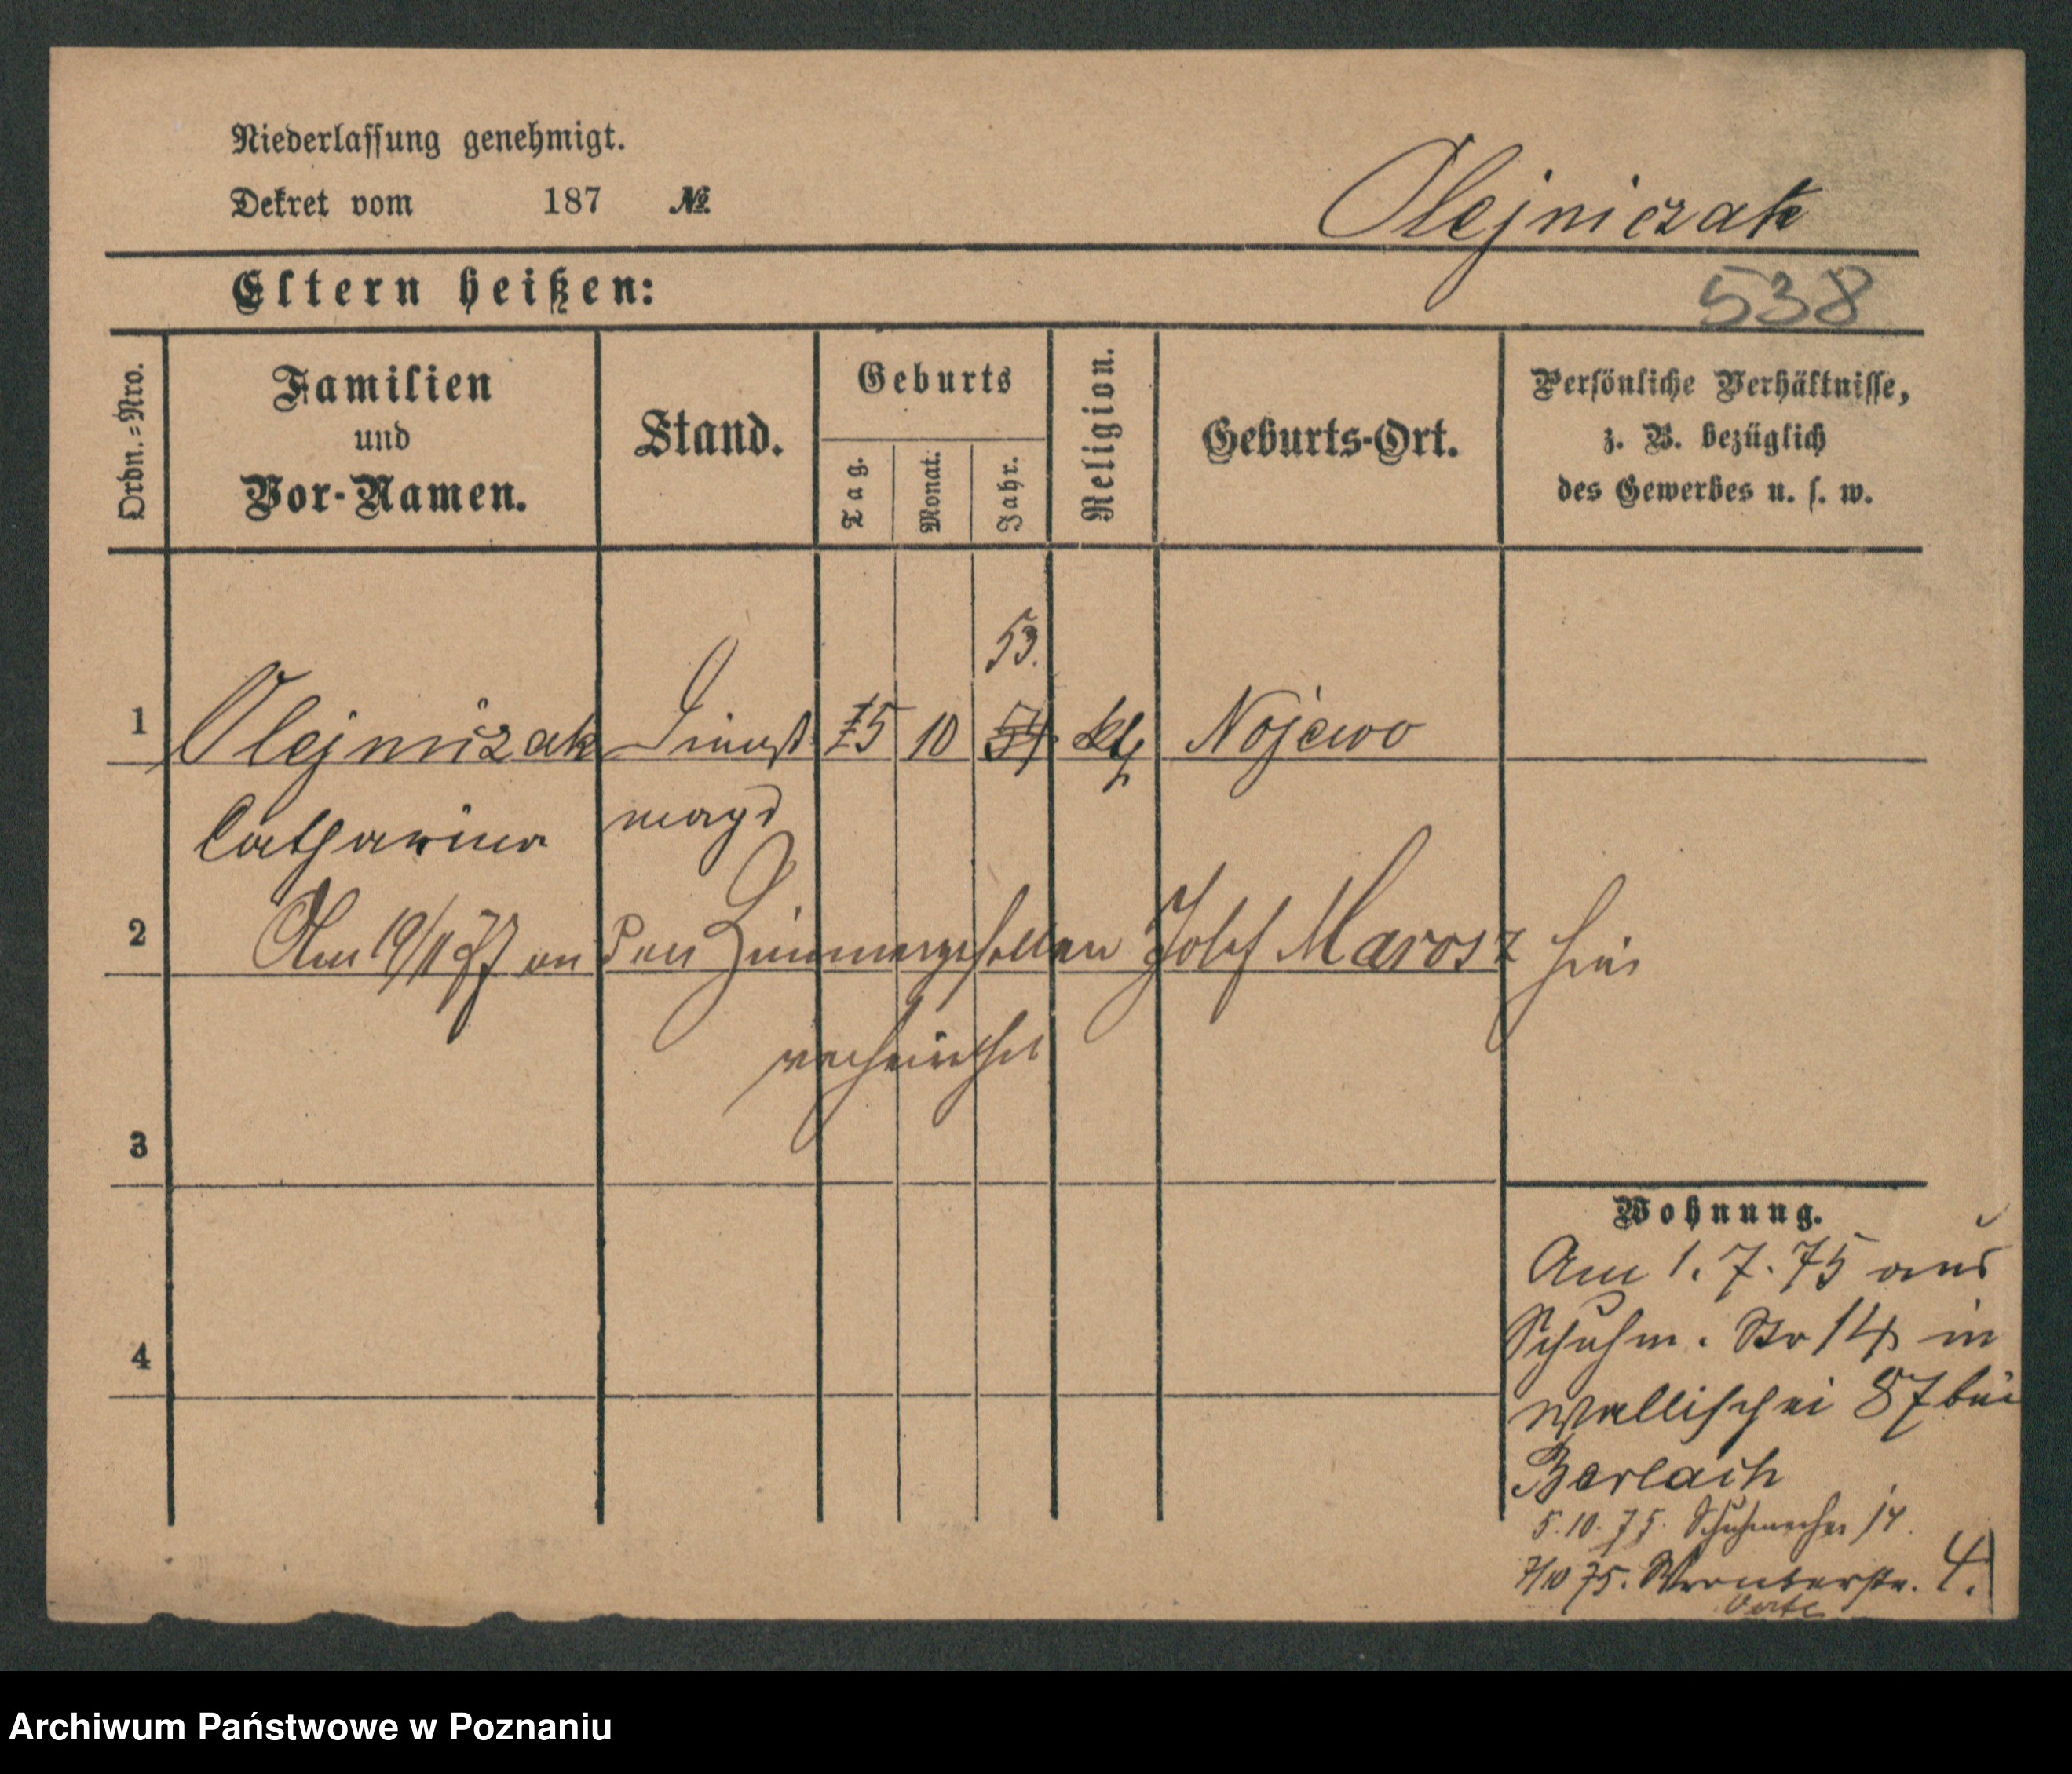 Niederlassung genehmigt.
Dekret vom 187 №
Olejniczak
Eltern heißen:
538
Ordn.=Nro.
Familien
und
Vor-Namen.
Stand.
Geburts
Tag.
Monat.
Jahr.
Religion.
Geburts-Ort.
Persönliche Verhältnisse,
z. B. bezüglich
des Gewerbes u. s. w.
53.
1 Olejniczak Dienst 15 10 54 ktl Nojewo
Catharina magd
2 Am 19/11 77 an den Zimmergesellen Josef Marosz hier
verheirathet
3
Wohnung.
Am 1. 7. 75 aus
Schuhm. Str 14 in
4
Wallischei 87 bei
Berlach
5. 10. 75. Schuhmacher 14.
7/10 75. Wronkerstr. 4.
Archiwum Państwowe w Poznaniu